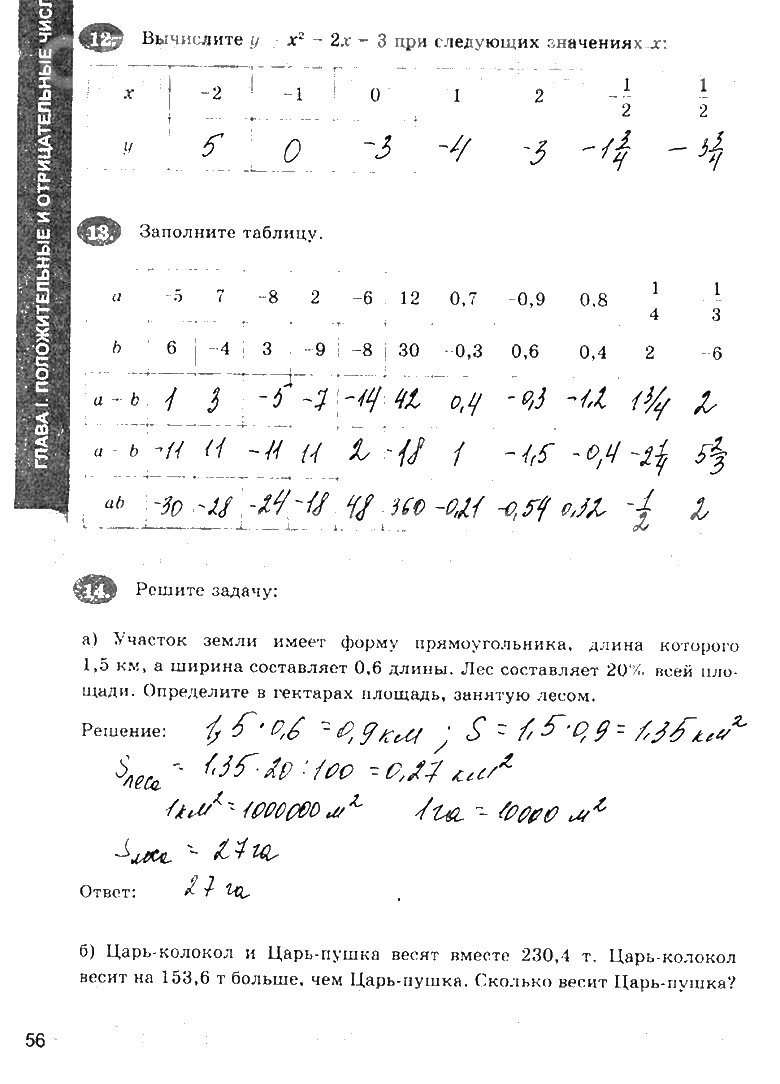 ГЛАВА I. ПОЛОЖИТЕЛЬНЫЕ И ОТРИЦАТЕЛЬНЫЕ ЧИСЛ
12. Вычислите y x² - 2x - 3 при следующих значениях x:
x -2 -1 0 1 2 -1/2 1/2
y 5 0 -3 -4 -3 -1 3/4 -3 3/4
13. Заполните таблицу.
a -5 7 -8 2 -6 12 0,7 -0,9 0,8 1/4 1/3
b 6 -4 3 -9 -8 30 -0,3 0,6 0,4 2 -6
a - b 1 3 -5 -7 -14 42 0,4 -0,3 -1,2 1 3/4 2
a - b -11 11 -11 11 2 -18 1 -1,5 -0,4 -2 1/4 5 2/3
ab -30 -28 -24 -18 48 360 -0,21 -0,54 0,32 -1/2 2
14. Решите задачу:
а) Участок земли имеет форму прямоугольника, длина которого
1,5 км, а ширина составляет 0,6 длины. Лес составляет 20% всей пло-
щади. Определите в гектарах площадь, занятую лесом.
Решение: 1,5 · 0,6 = 0,9 км ; S = 1,5 · 0,9 = 1,35 км²
Sлеса = 1,35 · 20 : 100 = 0,27 км²
1км² = 1000000 м² 1га = 10000 м²
Sлеса = 27 га
Ответ: 27 га
б) Царь-колокол и Царь-пушка весят вместе 230,4 т. Царь-колокол
весит на 153,6 т больше, чем Царь-пушка. Сколько весит Царь-пушка?
56